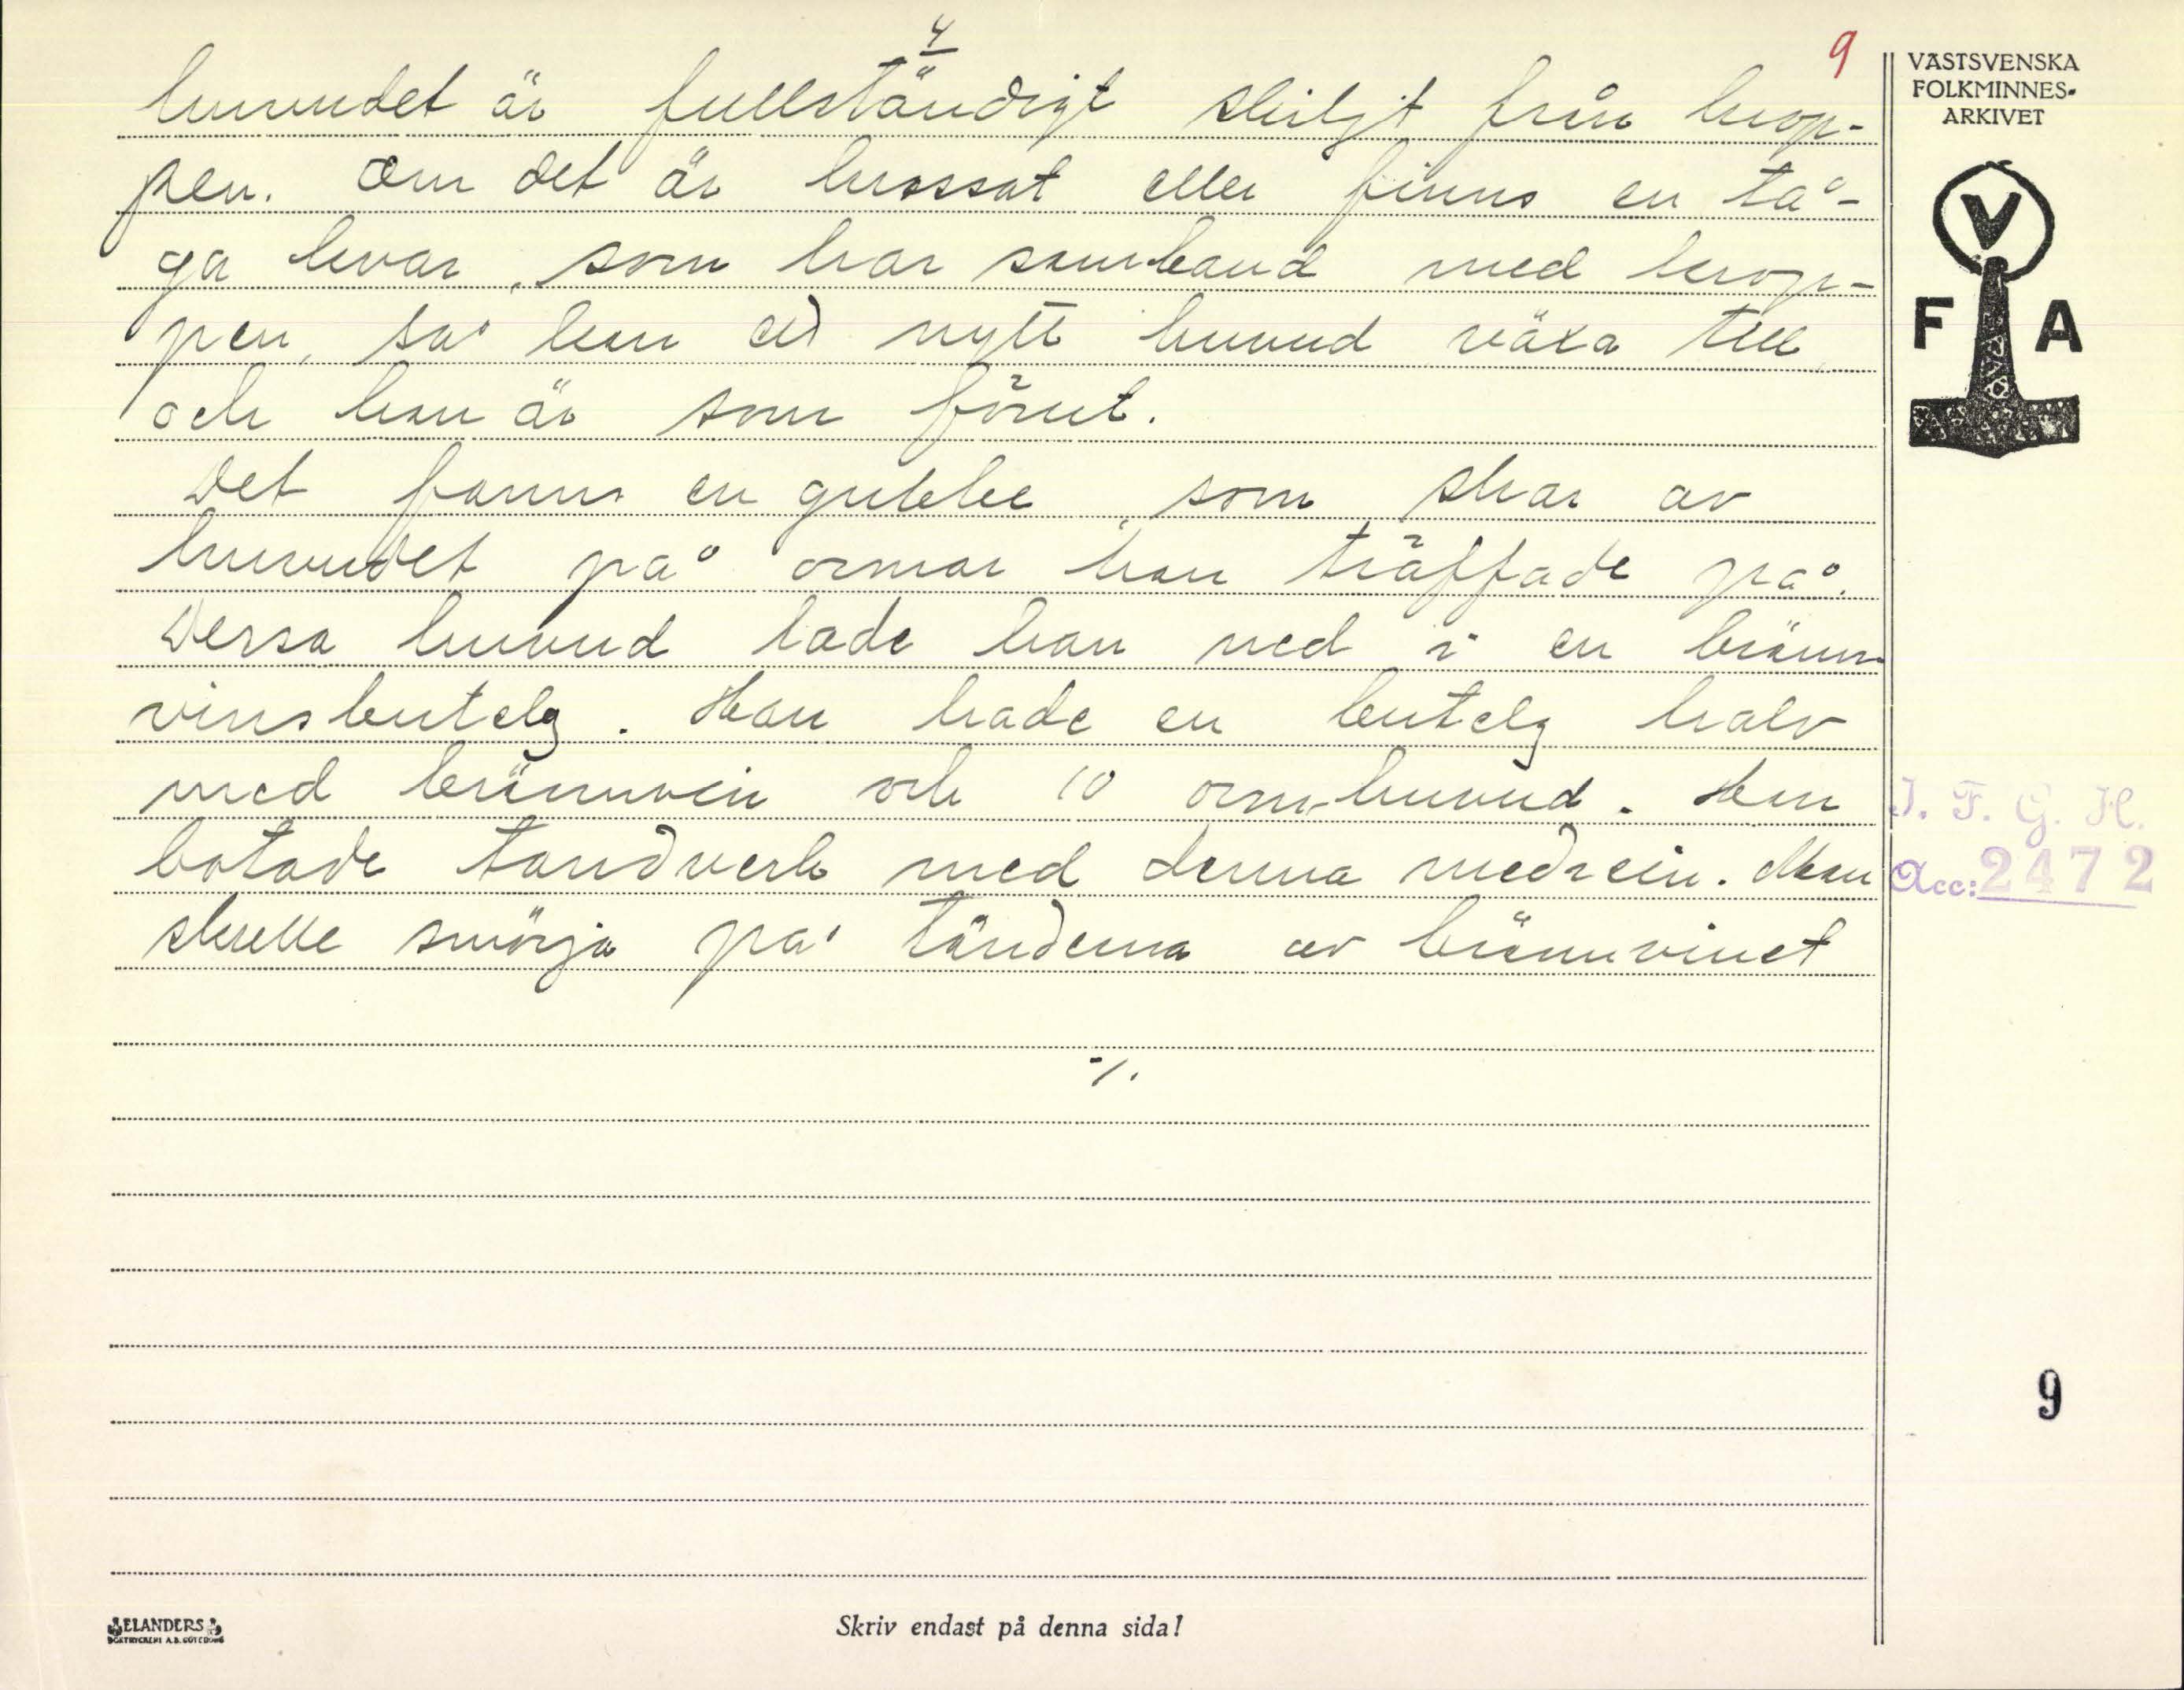 4
9
huvudet är fullständigt skiljt från krop-
pen. Om det är krossat eller finns en tå-
ga kvar, som har samband med krop-
pen, så kan ett nytt huvud växa till,
och han är som förut.
Det fanns en gubbe, som skar av
huvudet på ormar han träffade på.
Dessa huvud lade han ned i en bränn-
vinsbutelg. Han hade en butelg halv
med brännvin och 10 orm-huvud. Han
botade tandverk med denna medicin. Man
skulle smörja på tänderna av brännvinet
./.
VÄSTSVENSKA
FOLKMINNES-
ARKIVET
V
F A
I. F. G. H.
Acc: 2472
9
ELANDERS
BOKTRYCKERI A.B. GÖTEBORG
Skriv endast på denna sida!